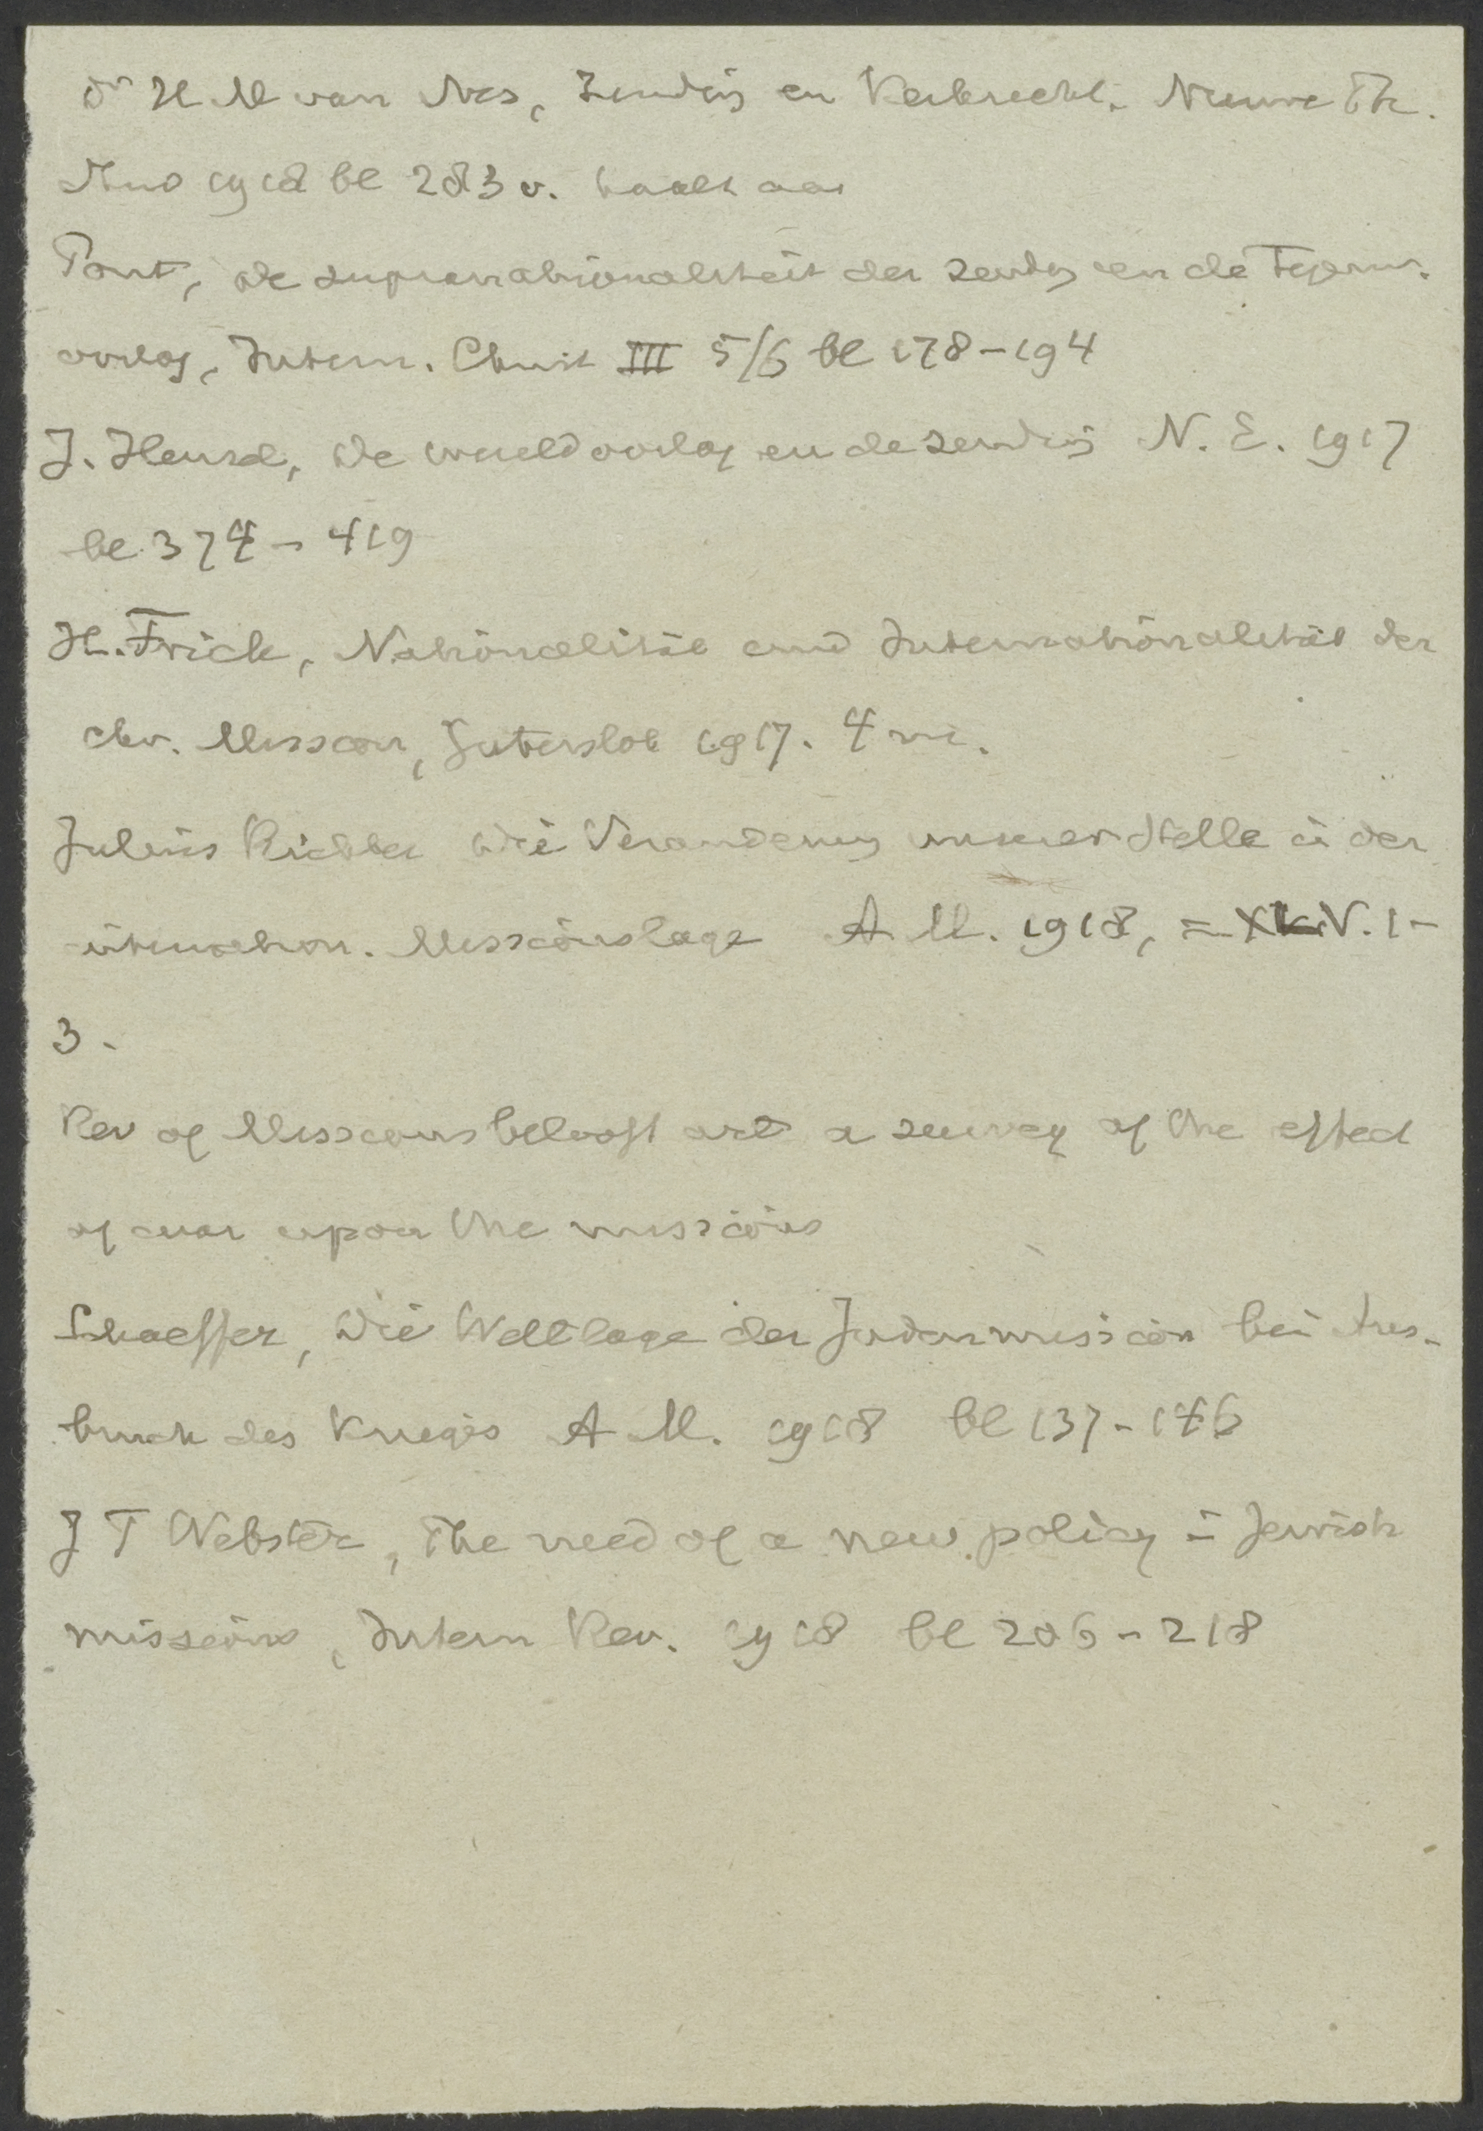 Dr H M van Nes, Zending en Kerkrecht. Nieuwe Th.
1918 bl 283 v. haalt aan
Pont, de supranationaliteit der zending en de Tegenw.
oorlog, Intern. Christ III 5/6 bl 178-194
J. Hensel, De wereldoorlog en de zending N. E. 1917
bl 374 - 419
H. Frick, Nationalität und Internationalität der
chr. Mission, Gütersloh 1917. 4 m.
Julius Richter Die Veranderung unserer Stelle in der
internation. Missionslage A M. 1918, = 1-
3.
Rev of Missions belooft art a survey of the effect
of war upon the missions
Schaeffer, Die Weltlage der Judenmission bei Aus-
bruch des Krieges A M. 1918 bl 137-146
J T Webster, The need of a new policy in Jewish
missions, Intern Rev. 1918 bl 206-218